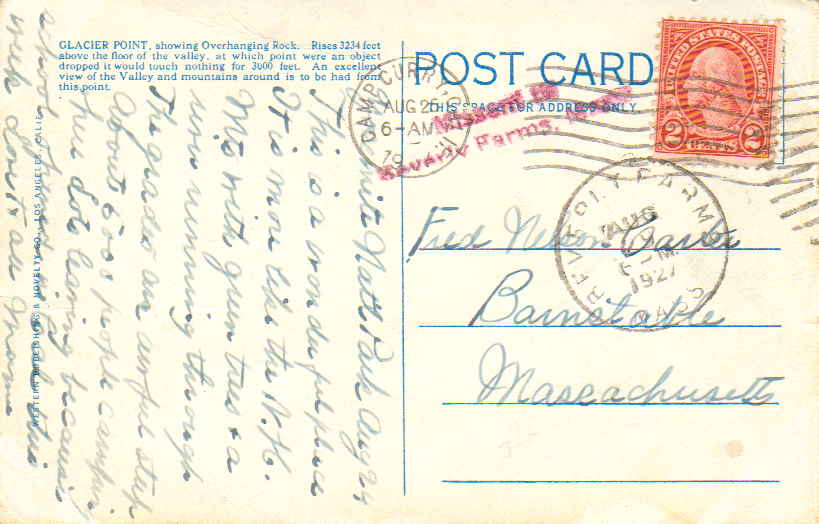 GLACIER POINT, showing Overhanging Rock. Rises 3234 feet
above the floor of the valley, at which point were an object
dropped it would touch nothing for 3000 feet. An excellent
view of the Valley and mountains around is to be had from
this point.
POST CARD
THIS SPACE FOR ADDRESS ONLY
UNITED STATES POSTAGE
2 CENTS 2
CAMP CURRY
AUG 25
6-AM
Missent to
Beverly Farms,
BEVERLY FARMS
AUG
1927
MASS
Fred Nelson
Barnstable
Massachusetts
WESTERN PUBLISHING & NOVELTY CO., LOS ANGELES, CALIF.
Nat'l Park Aug 24
This is a wonderful place
It is more like the N.H.
Mts with green trees & a
running through
The grades are awful steep
About 6000 people camping
here lots leaving because
school
week don't all Mama